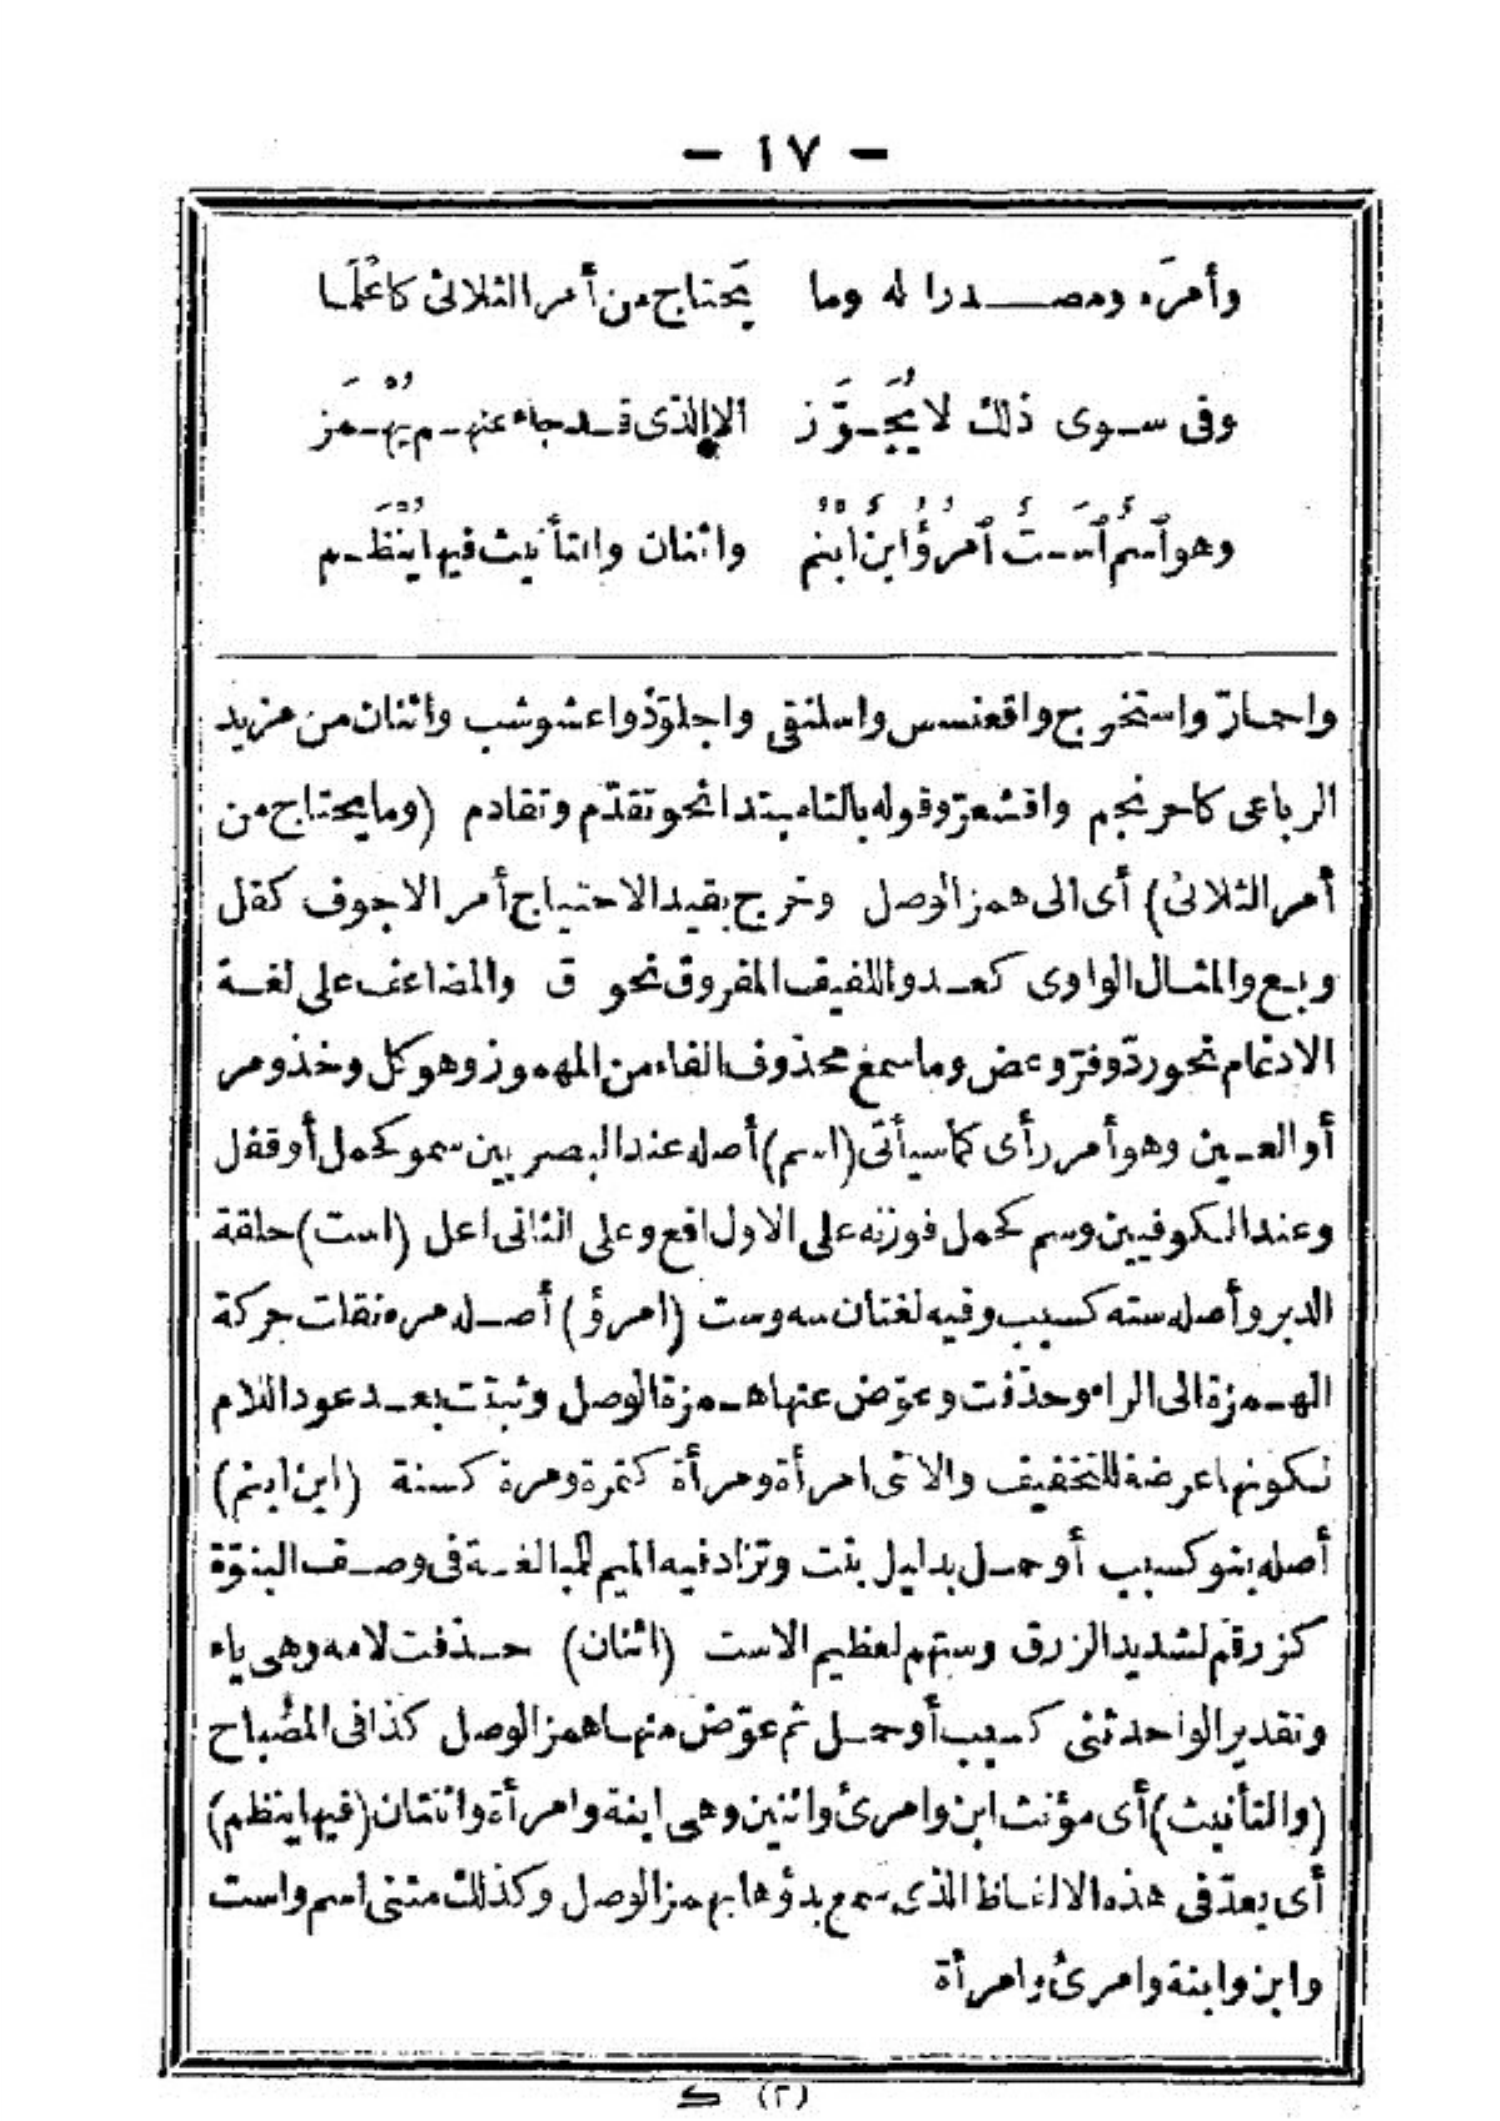 - ١٧ -
وأمرَه ومصدرا له وما يَحتاج من أمر الثلاثى كاعْلَما
وفى سوى ذلك لا يُجَوَّز الا الذى قد جاء عنهم يُهْمَز
وهو ٱسمُ ٱسَتُ ٱمرُؤُ ابنُ ابْنُمُ واثنان والتأنيث فيها يُنْتَظَم
واحمارّ واستخرج واقعنسس واسلنقى واجلوّذ واعشوشب واثنان من مزيد
الرباعى كاحرنجم واقشعرّ وقوله بالتاء يبتدا نحو تقدّم وتقادم (وما يحتاج من
أمر الثلاثى) أى الى همز الوصل وخرج بقيد الاحتياج أمر الاجوف كقل
وبع والمثال الواوى كعد واللفيف المفروق نحو ق والمضاعف على لغة
الادغام نحو ردّ وفرّ وعض وما سمع محذوف الفاء من المهموز وهو كل وخذ ومر
أو العين وهو أمر رأى كما سيأتى (اسم) أصله عند البصريين سمو كحمل أو قفل
وعند الكوفيين وسم كحمل فوزنه على الاول افع وعلى الثانى اعل (است) حلقة
الدبر وأصله سته كسبب وفيه لغتان سه وست (امرؤ) أصله مرء نقلت حركة
الهمزة الى الراء وحذفت وعوّض عنها همزة الوصل وثبتت بعد عود اللام
لكونها عرضة للتخفيف والانثى امرأة ومرأة كتمرة ومرة كسنة (ابن ابنم)
أصله بنو كسبب أو حمل بدليل بنت وتزاد فيه الميم للمبالغة فى وصف البنوّة
كزرقم لشديد الزرق وستهم لعظيم الاست (اثنان) حذفت لامه وهى ياء
وتقدير الواحد ثنى كسبب أو حمل ثم عوّض منها همز الوصل كذا فى المصباح
(والتأنيث) أى مؤنث ابن وامرئ واثنين وهى ابنة وامرأة واثنتان (فيها ينتظم)
أى يعدّ فى هذه الالفاظ الذى سمع بدؤها بهمز الوصل وكذلك مثنى اسم واست
وابن وابنة وامرئ وامرأة
(٢) ك